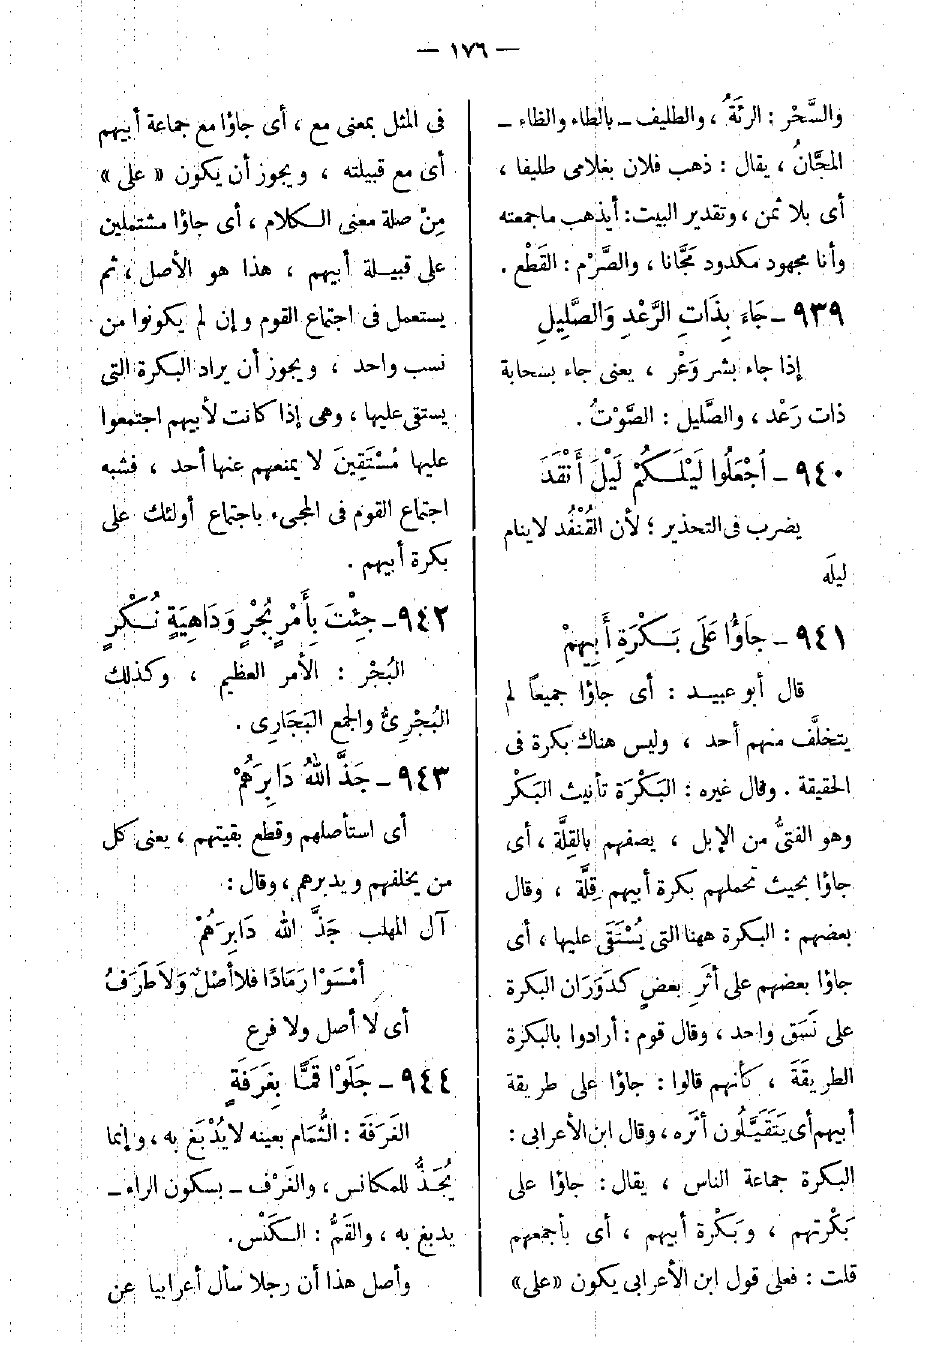 — ١٧٦ —
والسَّحْر : الرئَةُ ، والطليف ــ بالطاء والظاء ــ
المجَّانُ ، يقال : ذهب فلان بغلامى طليفا ،
أى بلا ثمن ، وتقدير البيت : أيذهب ماجمعته
وأنا مجهود مكدود مَجَّانا ، والصَّرْم : القَطْع .
٩٣٩ ــ جَاءَ بِذَاتِ الرَّعْدِ وَالصَّلِيلِ
إذا جاء بشر وَعْر ، يعنى جاء بسحابة
ذات رَعْد ، والصَّليل : الصَّوْتُ .
٩٤٠ ــ اَجْعَلُوا لَيْلَكُمْ لَيْلَ أَنْقَدَ
يضرب فى التحذير ؛ لأن القُنْفُد لاينام
ليلَه
٩٤١ ــ جَاؤُا عَلَى بَكْرَةِ أَبِيهِمْ
قال أبو عبيد : أى جاؤا جميعاً لم
يتخلَّف منهم أحد ، وليس هناك بكرة فى
الحقيقة . وقال غيره : البَكْرَة تأنيث البَكْر
وهو الفتىُّ من الإبل ، يصفهم بالقِلَّة ، أى
جاؤا بحيث تحملهم بكرة أبيهم قِلَّة ، وقال
بعضهم : البكرة ههنا التى يُسْتَقَى عليها ، أى
جاؤا بعضهم على أثَرِ بعضٍ كدَوَرَان البكرة
على نَسَق واحد ، وقال قوم : أرادوا بالبكرة
الطريقَةَ ، كأنهم قالوا : جاؤا على طريقة
أبيهم أى يَتَقَيَّلُون أثرَه ، وقال ابن الأعرابى :
البكرة جماعة الناس ، يقال : جاؤا على
بَكْرتهم ، وبَكْرة أبيهم ، أى بأجمعهم
قلت : فعلى قول ابن الأعرابى يكون «على»
فى المثل بمعنى مع ، أى جاؤا مع جماعة أبيهم
أى مع قبيلته ، ويجوز أن يكون « على »
مِنْ صلة معنى الكلام ، أى جاؤا مشتملين
على قبيلة أبيهم ، هذا هو الأصل ، ثم
يستعمل فى اجتماع القوم وإن لم يكونوا من
نسب واحد ، ويجوز أن يراد البكرة التى
يستقى عليها ، وهى إذا كانت لأبيهم اجتمعوا
عليها مُسْتَقِينَ لا يمنعهم عنها أحد ، فشبه
اجتماع القوم فى المجىء باجتماع أولئك على
بكرة أبيهم .
٩٤٢ ــ جِئْتَ بِأَمْرٍ بُجْرٍ وَدَاهِيَةٍ نُكْرٍ
البُجْر : الأمر العظيم ، وكذلك
البُجْرِىُّ والجمع البَجَارِى .
٩٤٣ ــ جَذَّ اللهُ دَابِرَهُمْ
أى استأصلهم وقطع بقيتهم ، يعنى كل
من يخلفهم ويدبرهم ، وقال :
آل المهلب جَذَّ الله دَابِرَهُمْ
أَمْسَوْا رَمَادًا فلاأصْلٌ وَلاَطَرَفُ
أى لا أصل ولا فرع
٩٤٤ ــ جَلَوْا قَمًّا بِغَرَفَةٍ
الغَرَفَة : الثُّمَام بعينه لايُدْبَغ به ، وإنما
يُجَذُّ للمكانس ، والغَرْف ــ بسكون الراء ــ
يدبغ به ، والقَمُّ : الكَنْس .
وأصل هذا أن رجلا سأل أعرابيا عن